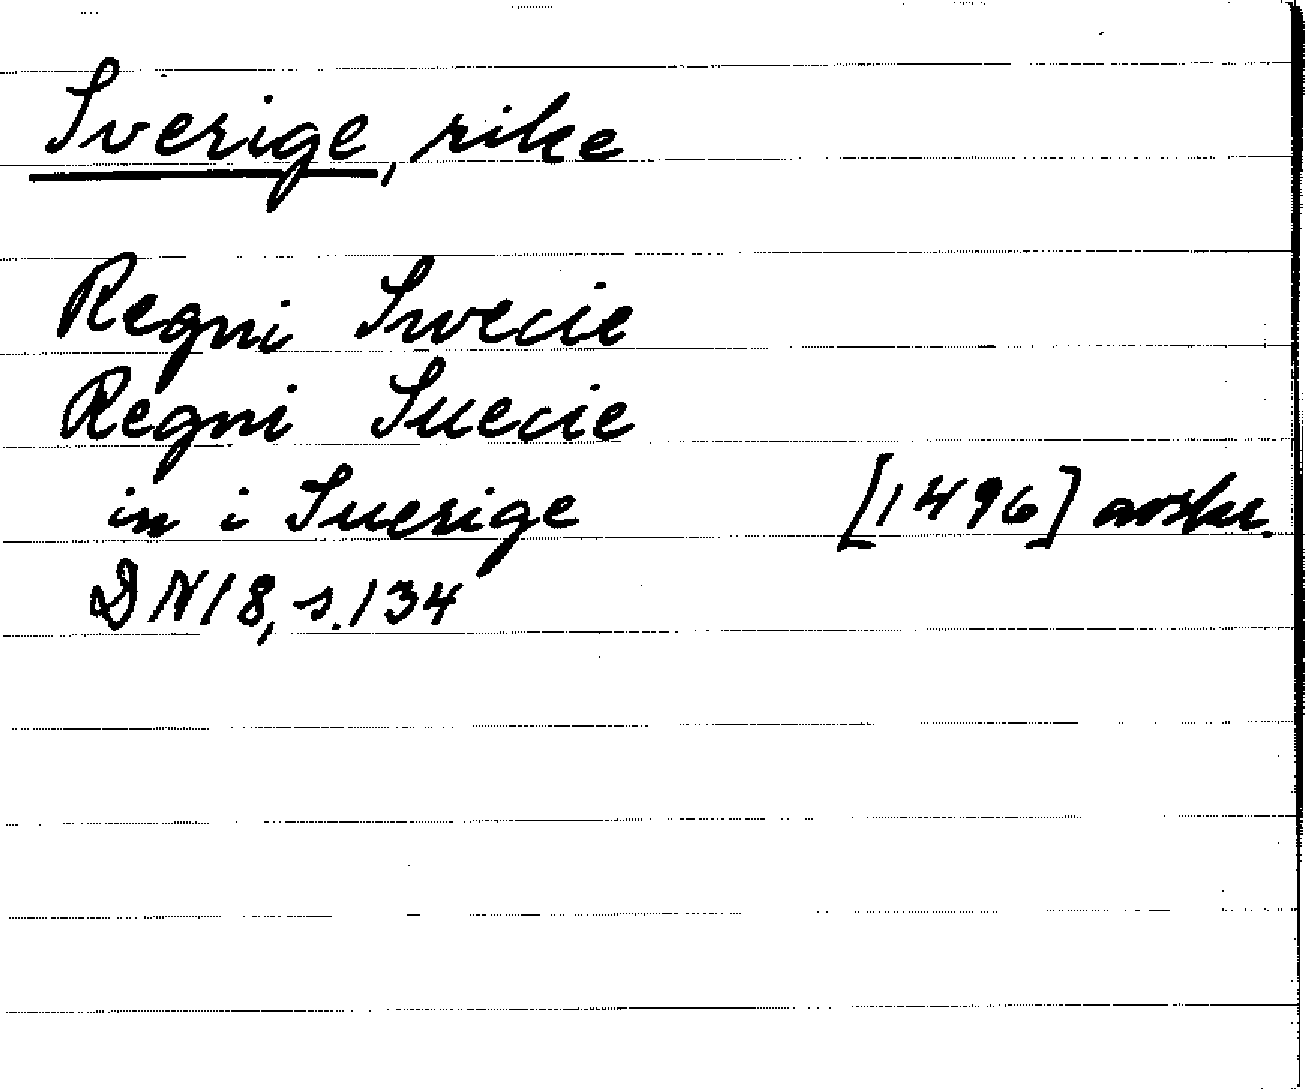 Sverige, rike
Regni Swecie
Regni Suecie
in i Suerige [1496] avskr.
DN18, s.134